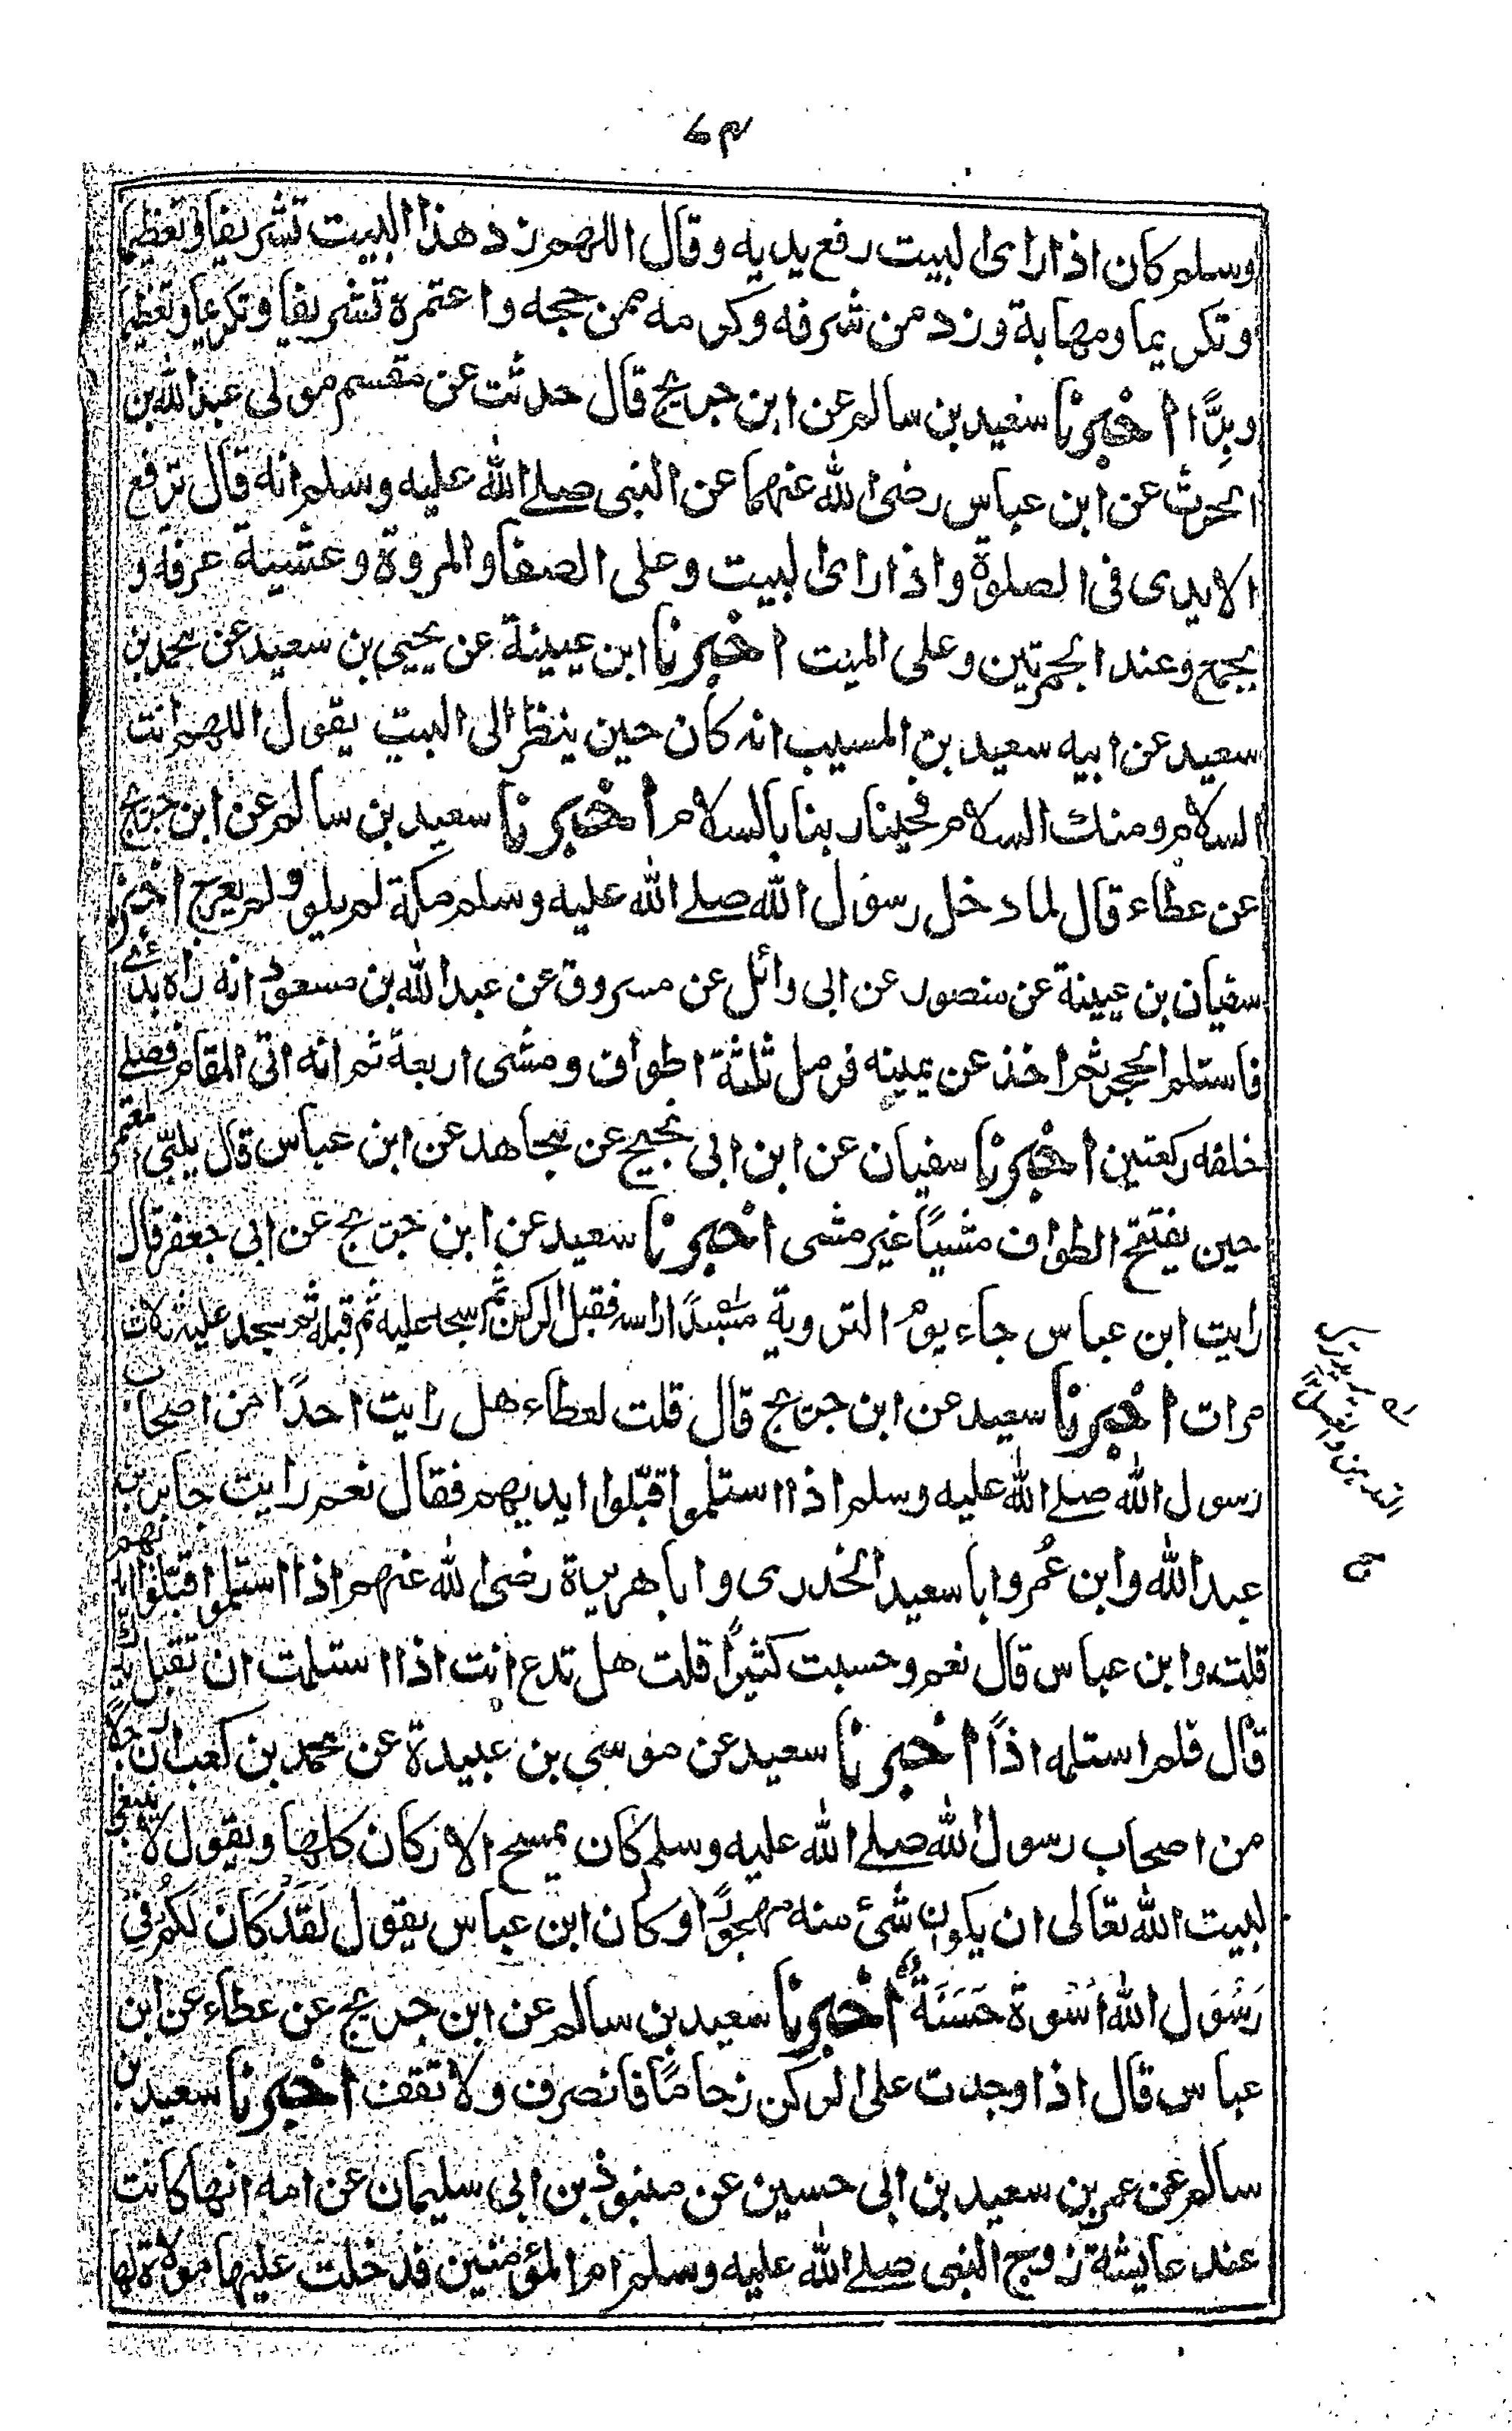 وسلم كان اذا رأى البيت رفع يديه وقال اللهم زد هذا البيت تشريفا وتعظيما
وتكريما ومهابة وزد من شرفه وكرمه ممن حجه واعتمره تشريفا وتكريما وتعظيما
وبرًّا اخبرنا سعيد بن سالم عن ابن جريج قال حدثت عن مقسم مولى عبد الله بن
الحرث عن ابن عباس رضى الله عنهما عن النبى صلے الله عليه وسلم انه قال ترفع
الايدى فى الصلوة واذا راى البيت وعلى الصفا والمروة وعشية عرفة و
بجمع وعند الجمرتين وعلى الميت اخبرنا ابن عيينة عن يحيى بن سعيد عن محمد بن
سعيد عن ابيه سعيد بن المسيب انه كان حين ينظر الى البيت يقول اللهم انت
السلام ومنك السلام فحينا ربنا بالسلام اخبرنا سعيد بن سالم عن ابن جريج
عن عطاء قال لما دخل رسول الله صلے الله عليه وسلم مكة لم يلو ولم يعرج اخبرنا
سفيان بن عيينة عن منصور عن ابى وائل عن مسروق عن عبد الله بن مسعود انه راه بدأ
فاستلم الحجر ثم اخذ عن يمينه فرمل ثلثة اطواف ومشى اربعة ثم انه اتى المقام فصلے
خلفه ركعتين اخبرنا سفيان عن ابن ابى نجيح عن مجاهد عن ابن عباس قال يلبّى المعتمر
حين يفتتح الطواف مشيًا غير مشى اخبرنا سعيد عن ابن جريج عن ابى جعفر قال
رايت ابن عباس جاء يوم التروية مسبدًا راسه فقبل الركن ثم سجد عليه ثم قبله ثم سجد عليه ثلاث
مرات اخبرنا سعيد عن ابن جريج قال قلت لعطاء هل رايت احدًا من اصحاب
رسول الله صلے الله عليه وسلم اذا استلموا قبّلوا ايديهم فقال نعم رايت جابر بن
عبد الله وابن عُمر وابا سعيد الخدرى وابا هريرة رضى الله عنهم اذا استلموا قبّلوا ايديهم
قلت وابن عباس قال نعم وحسبت كثيرًا قلت هل تدع انت اذا استلمت ان تقبل يدك
قال فلم استلمه اذًا اخبرنا سعيد عن موسى بن عبيدة عن محمد بن كعب ان رجلًا
من اصحاب رسول الله صلے الله عليه وسلم كان يمسح الاركان كلها ويقول لا ينبغى
لبيت الله تعالى ان يكون شئ منه مهجورًا وكان ابن عباس يقول لَقَدْ كَانَ لَكُمْ فِى
رَسُوْلِ اللهِ اُسْوَةٌ حَسَنَةٌ اخبرنا سعيد بن سالم عن ابن جريج عن عطاء عن ابن
عباس قال اذا وجدت على الركن زحامًا فانصرف ولا تقف اخبرنا سعيد بن
سالم عن عمر بن سعيد بن ابى حسين عن منبوذ بن ابى سليمان عن امه انها كانت
عند عايشة زوج النبى صلے الله عليه وسلم ام المؤمنين فدخلت عليها مولاة لها